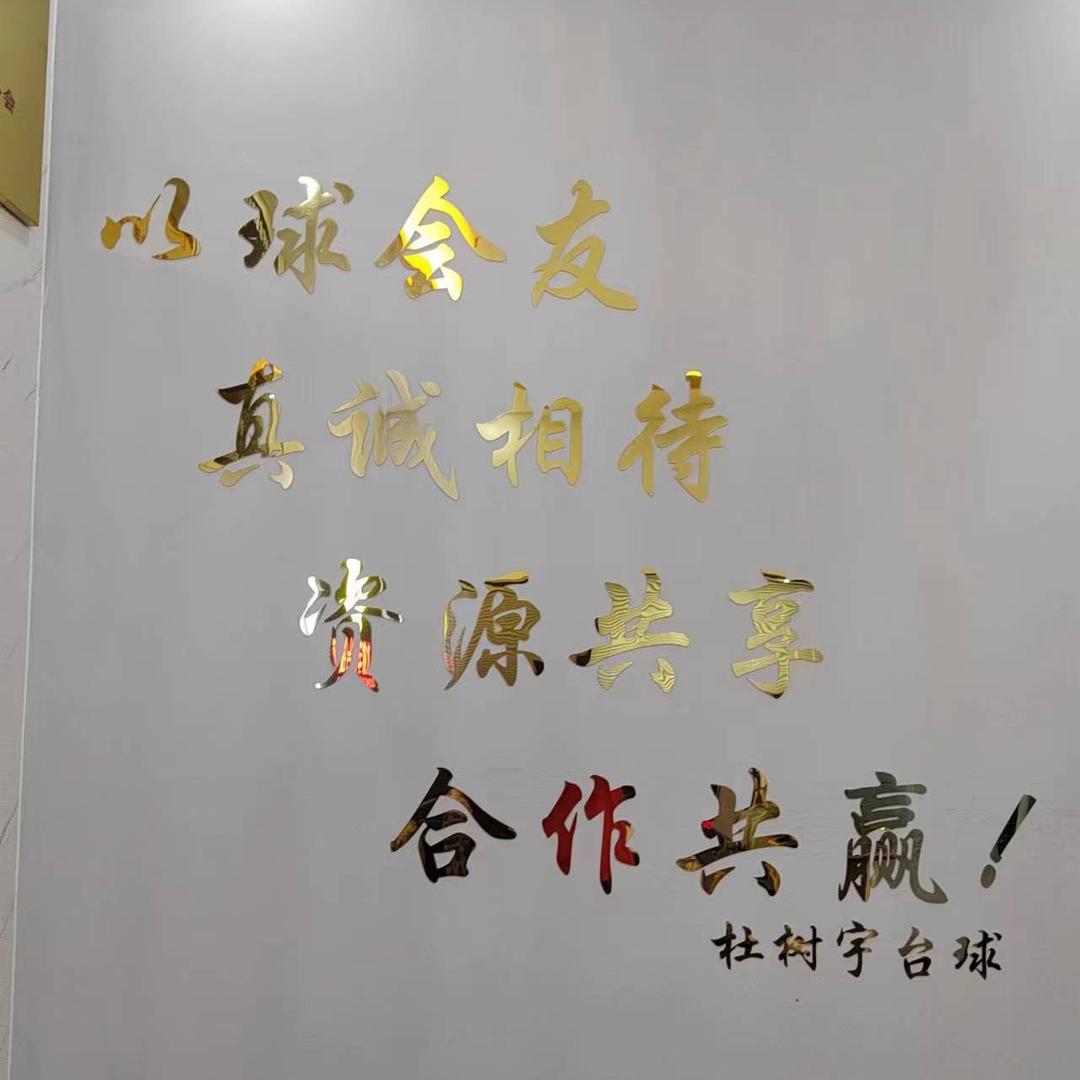 以球会友
真诚相待
资源共享
合作共赢！
杜树宇台球